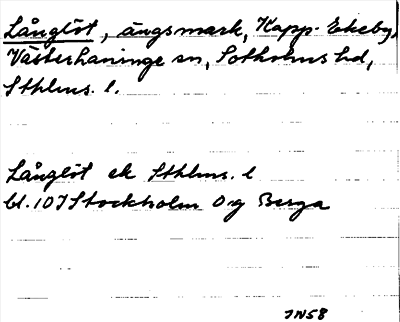 Långlöt, ängsmark, Kapp-Ekeby,
Västerhaninge sn, Sotholms hd,
Sthlms. l.
Långlöt ek Sthlms. l
bl. 10J Stockholm Og Berga
JN58